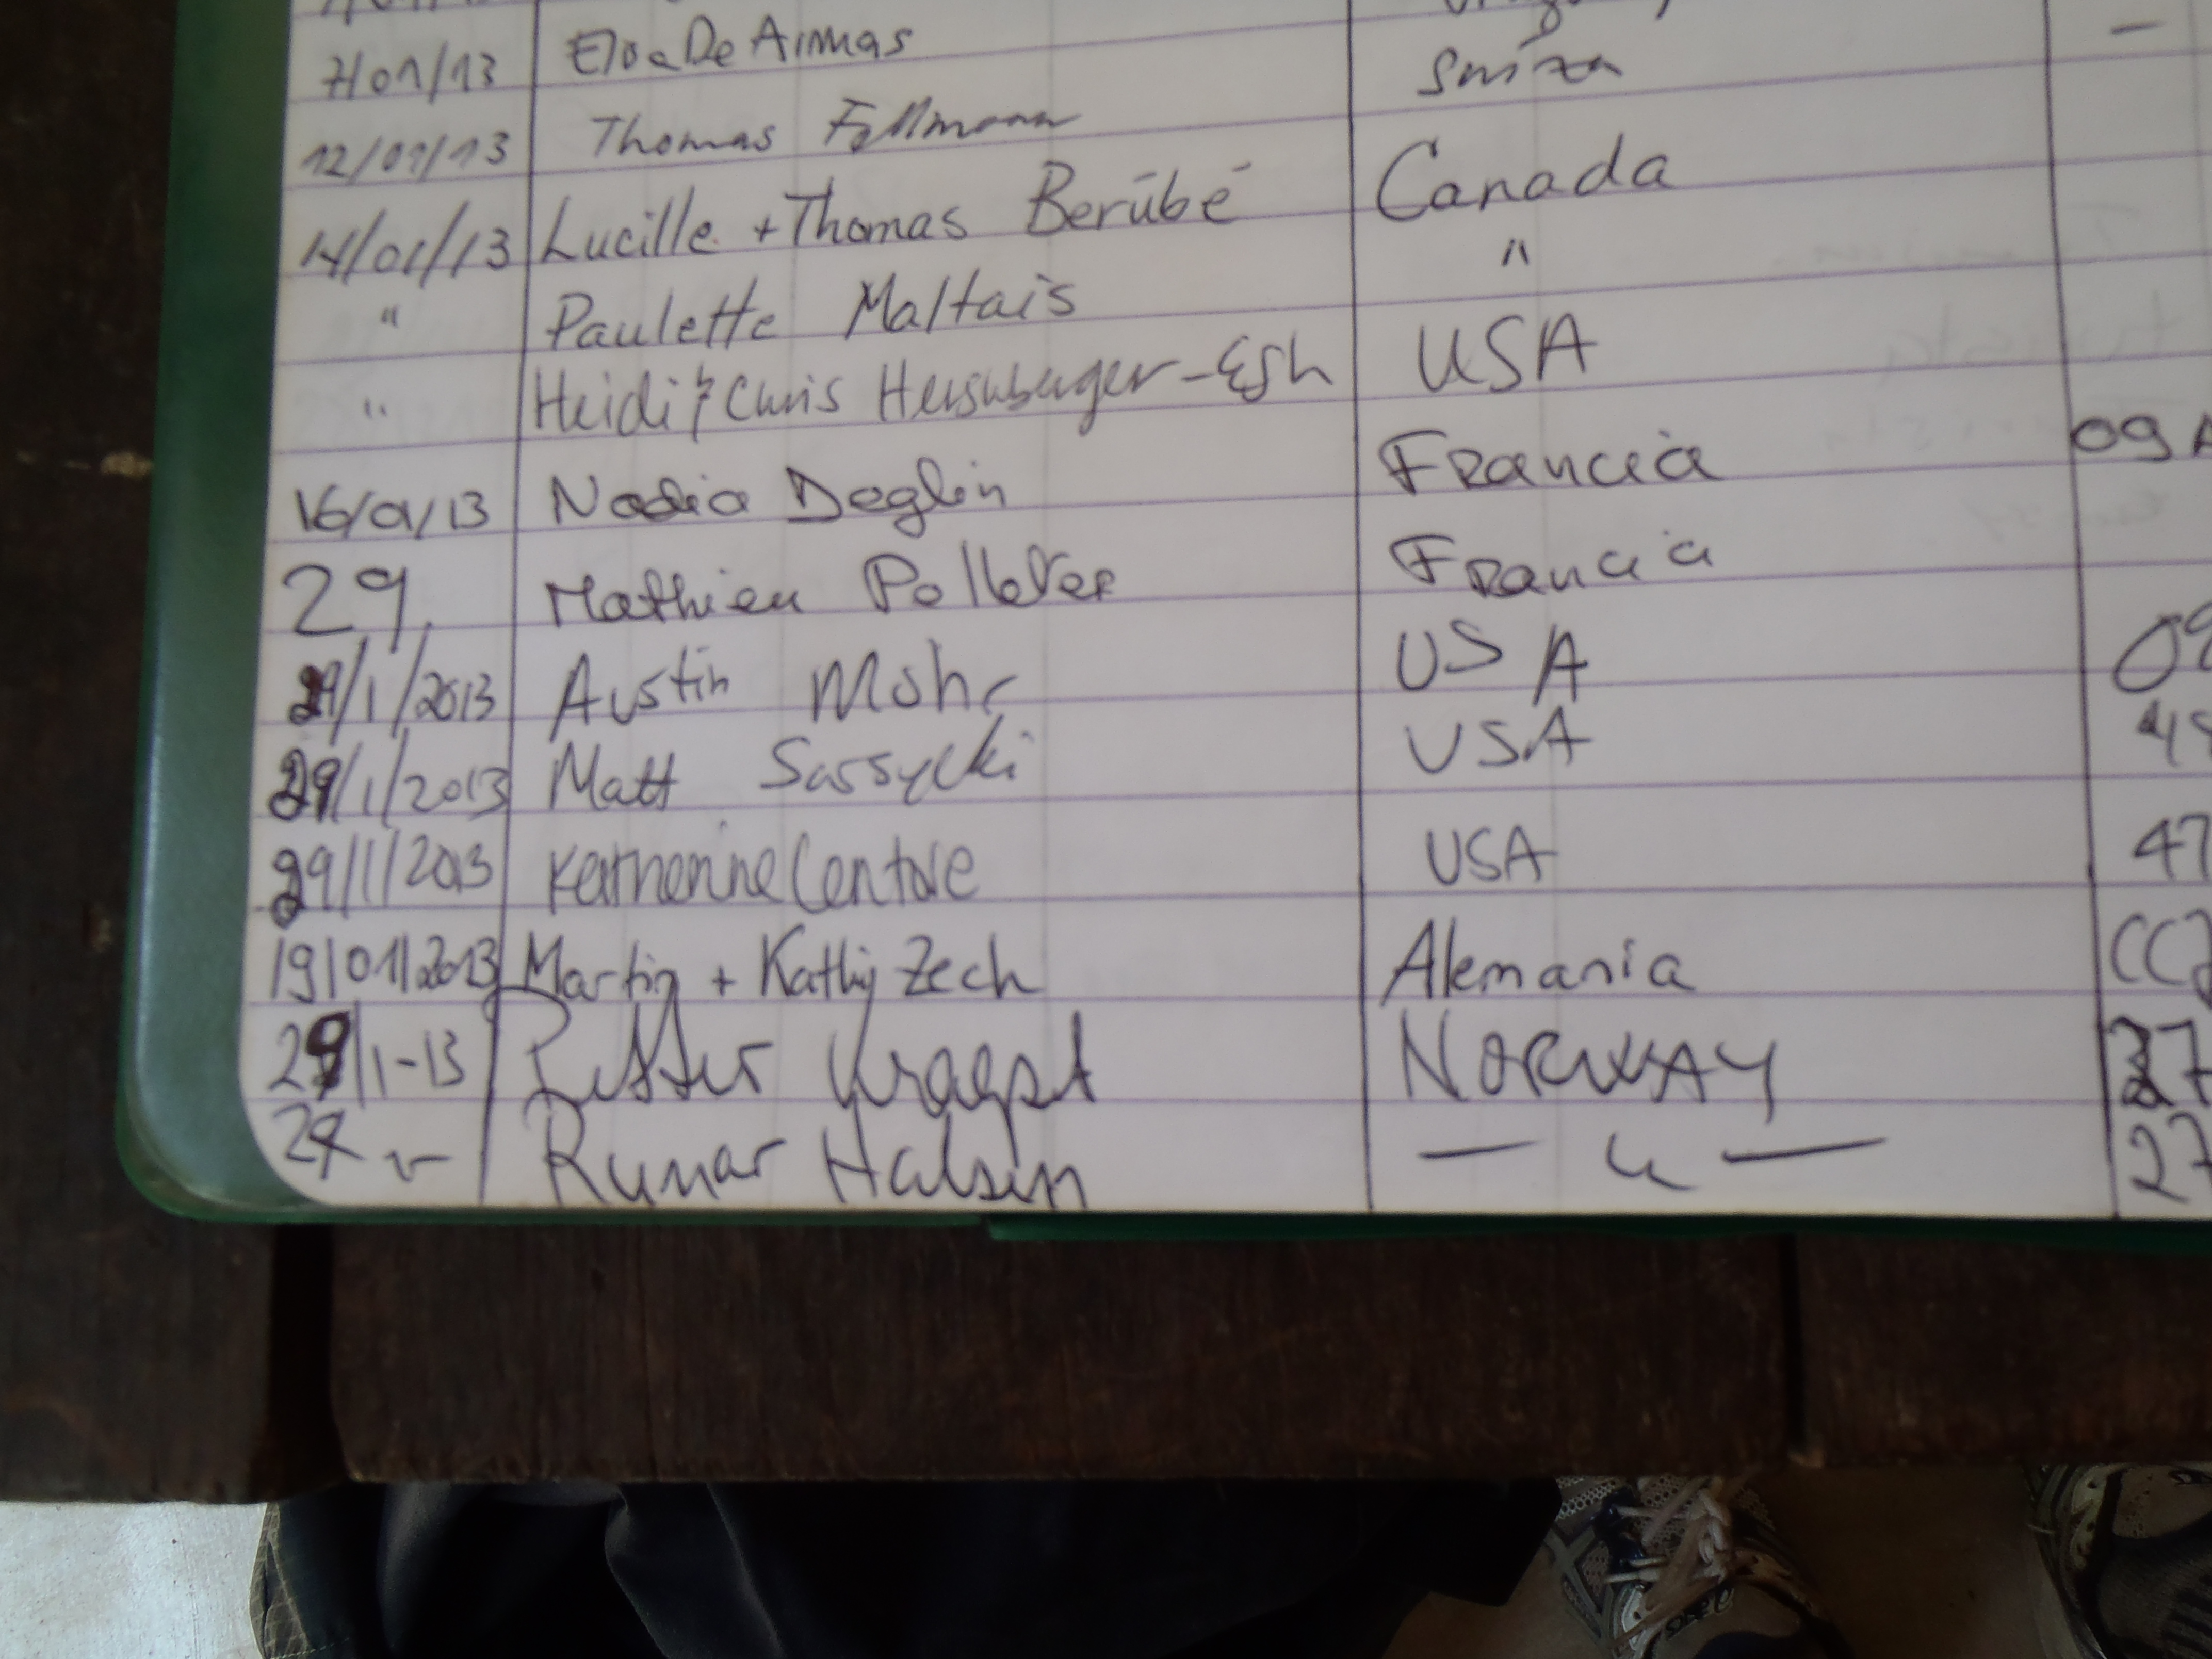 7/01/13 De Armas
12/01/13 Thomas Suiza
14/01/13 Lucille + Thomas Berübé Canada
" Paulette Maltais "
" Heidi & Chris Hershberger-Esh USA
16/01/13 Nadia Deglin Francia 09
29. Mathieu Francia
29/1/2013 Austin Mohr USA 09
29/1/2013 Matt USA 45
29/1/2013 Katherine Centore USA 47
19/01/2013 Martin + Kathy Zech Alemania CC
29/1-13 Petter NORWAY 27
29 Runar Halsen — " — 27